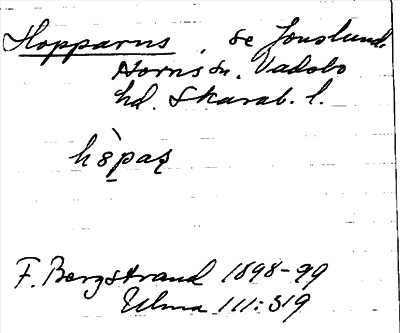 Hopparns, se Jonslund.
Norns sn. Vadsbo
hd. Skarab. l.
hòpaʂ
F. Bergstrand 1898-99
Ulma 111:319